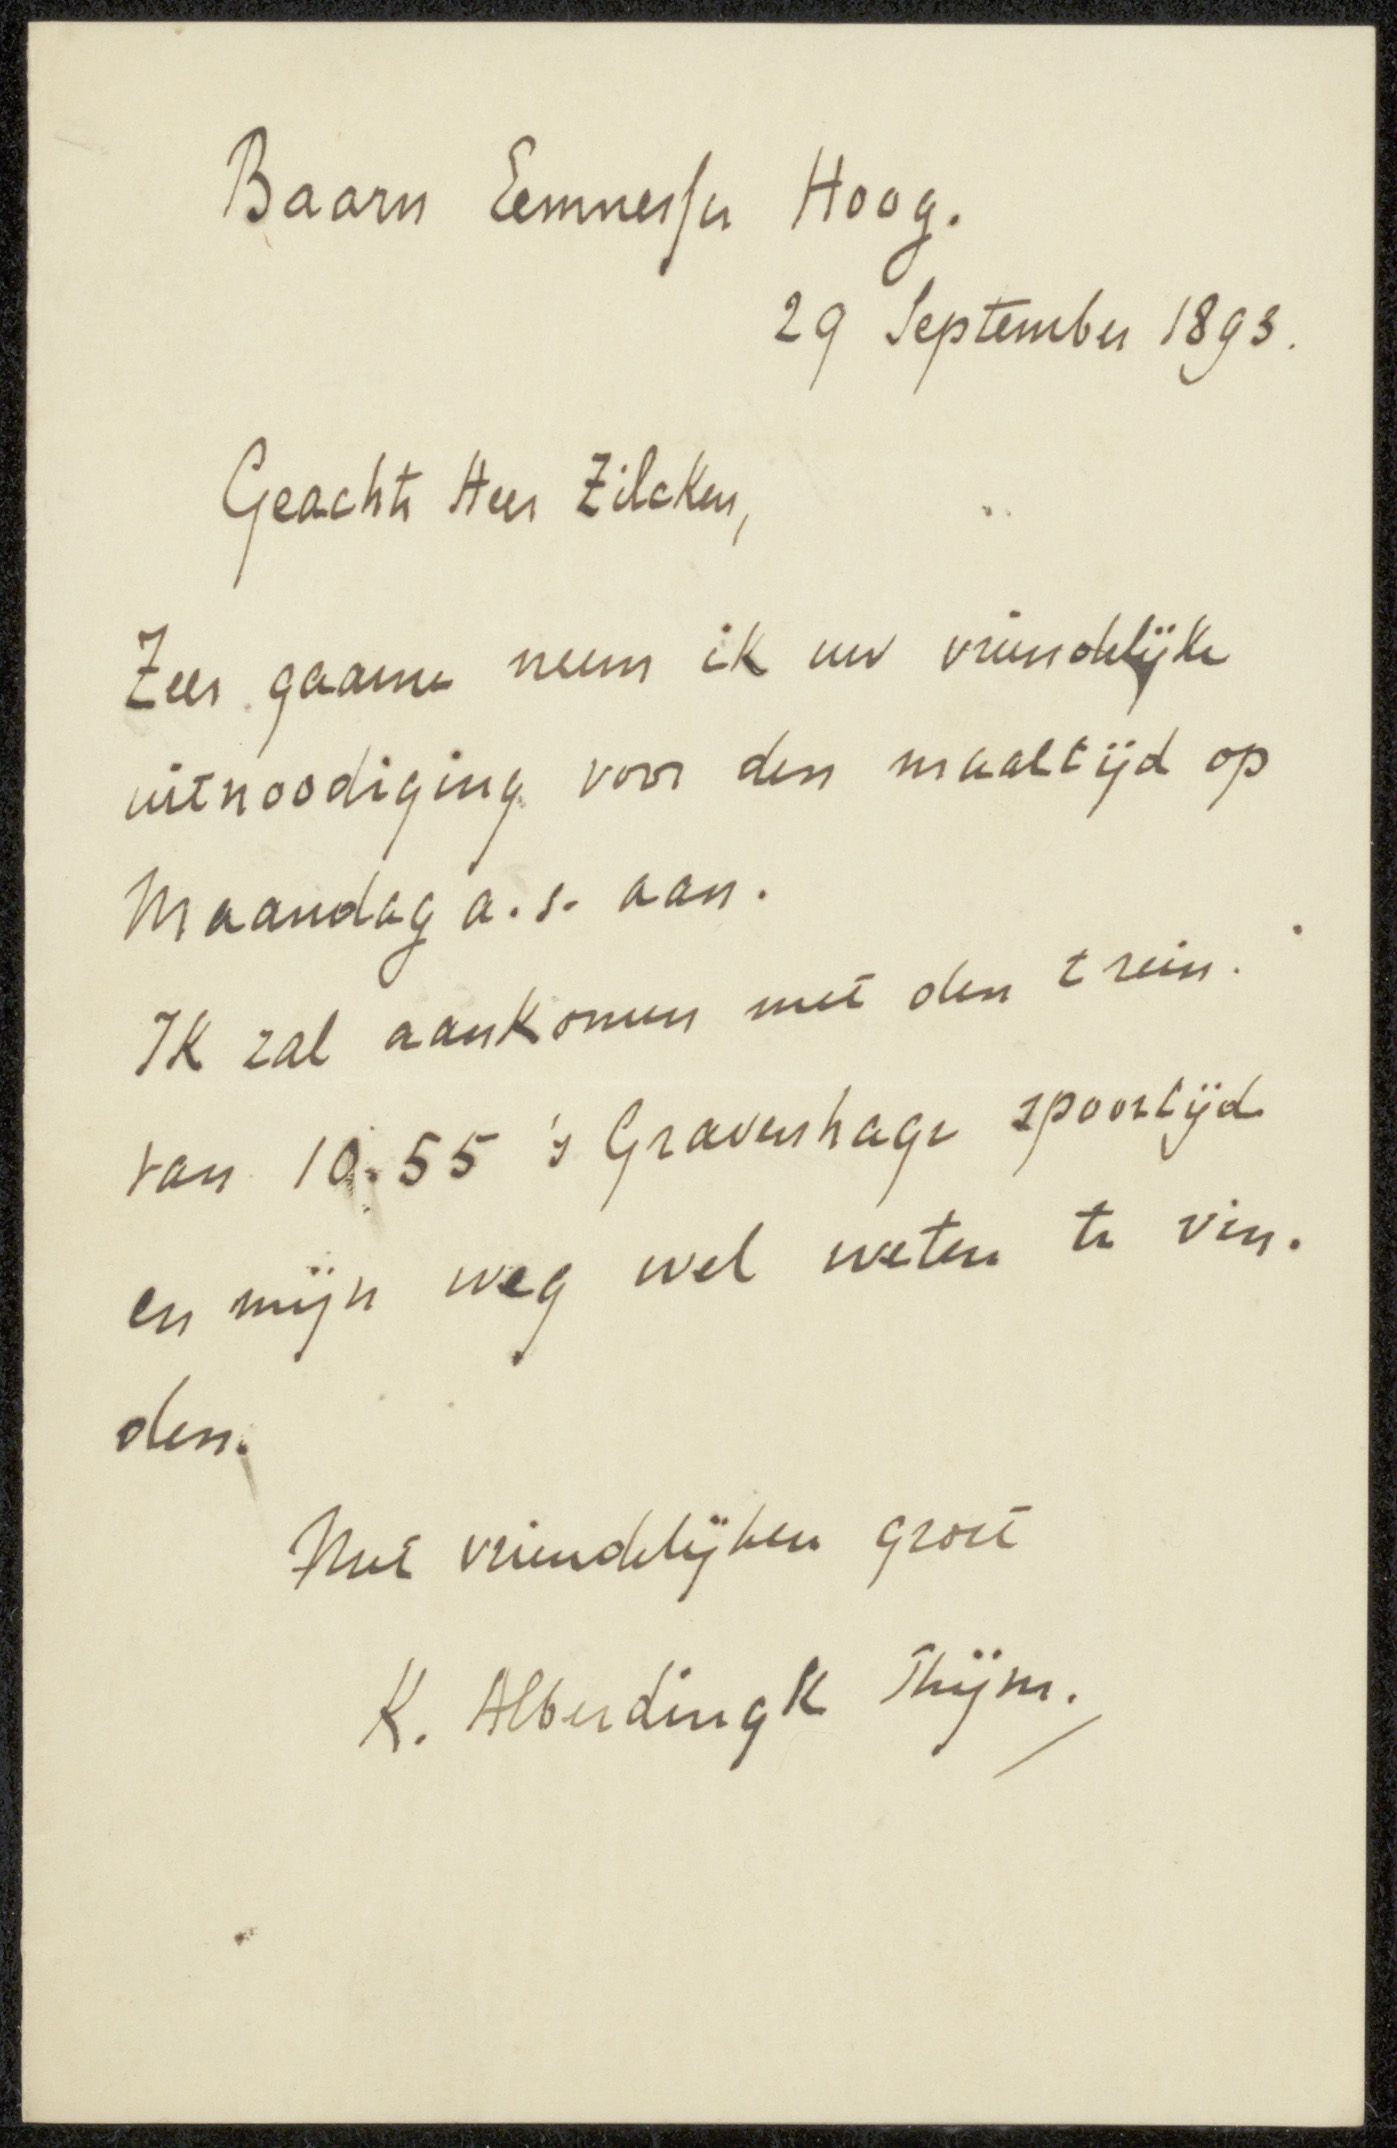 Baarn Eemnesser Hoog.
29 September 1893.
Geachte Heer Zilcken,
Zeer gaarne neem ik uw vriendelijke
uitnoodiging voor den maaltijd op
Maandag a.s. aan.
Ik zal aankomen met den trein.
van 10.55 's Gravenhage spoortijd
en mijn weg wel weten te vin-
den.
Met vriendelijken groet
K. Alberdingk Thijm.